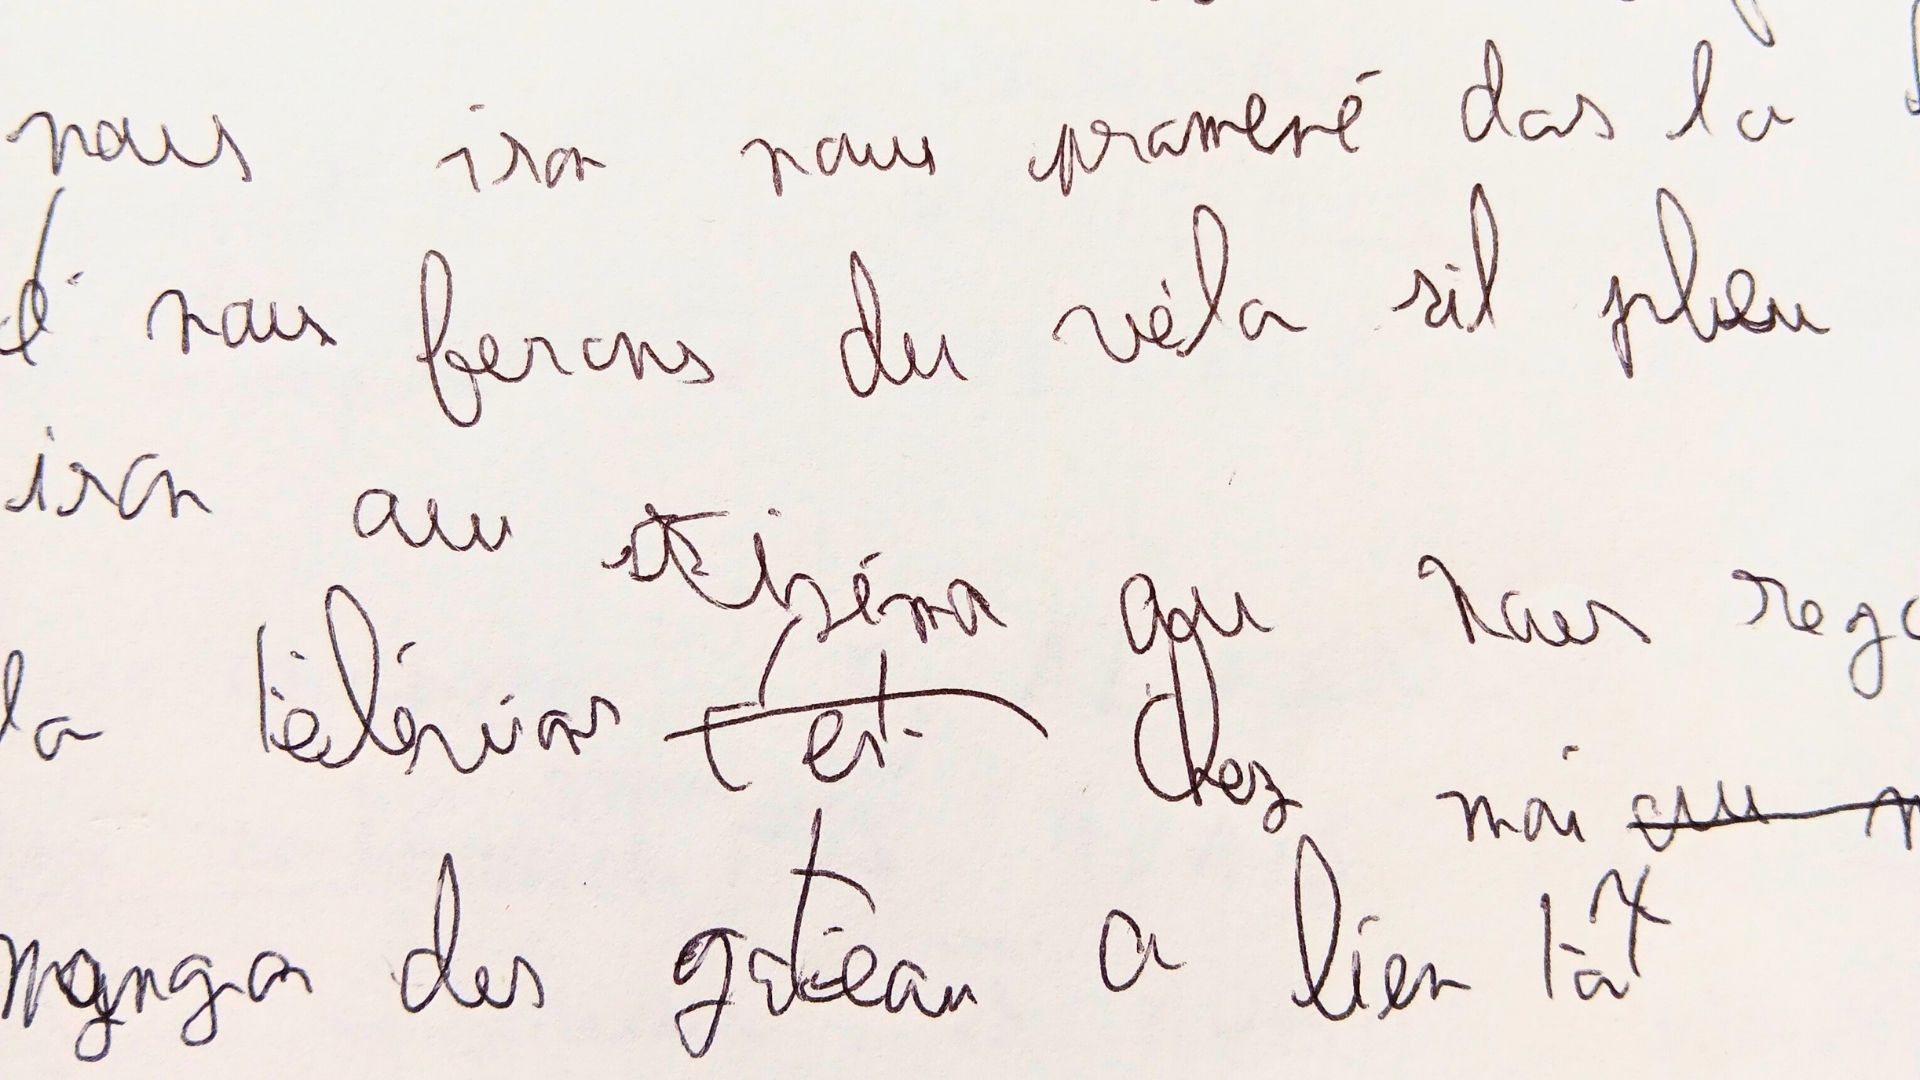 nous iron nous promené das la
é nous ferons du vélo sil pleu
iron au sinéma ou nous rega
la télévion est chez moi ou n
mangon des gateau a bien tot